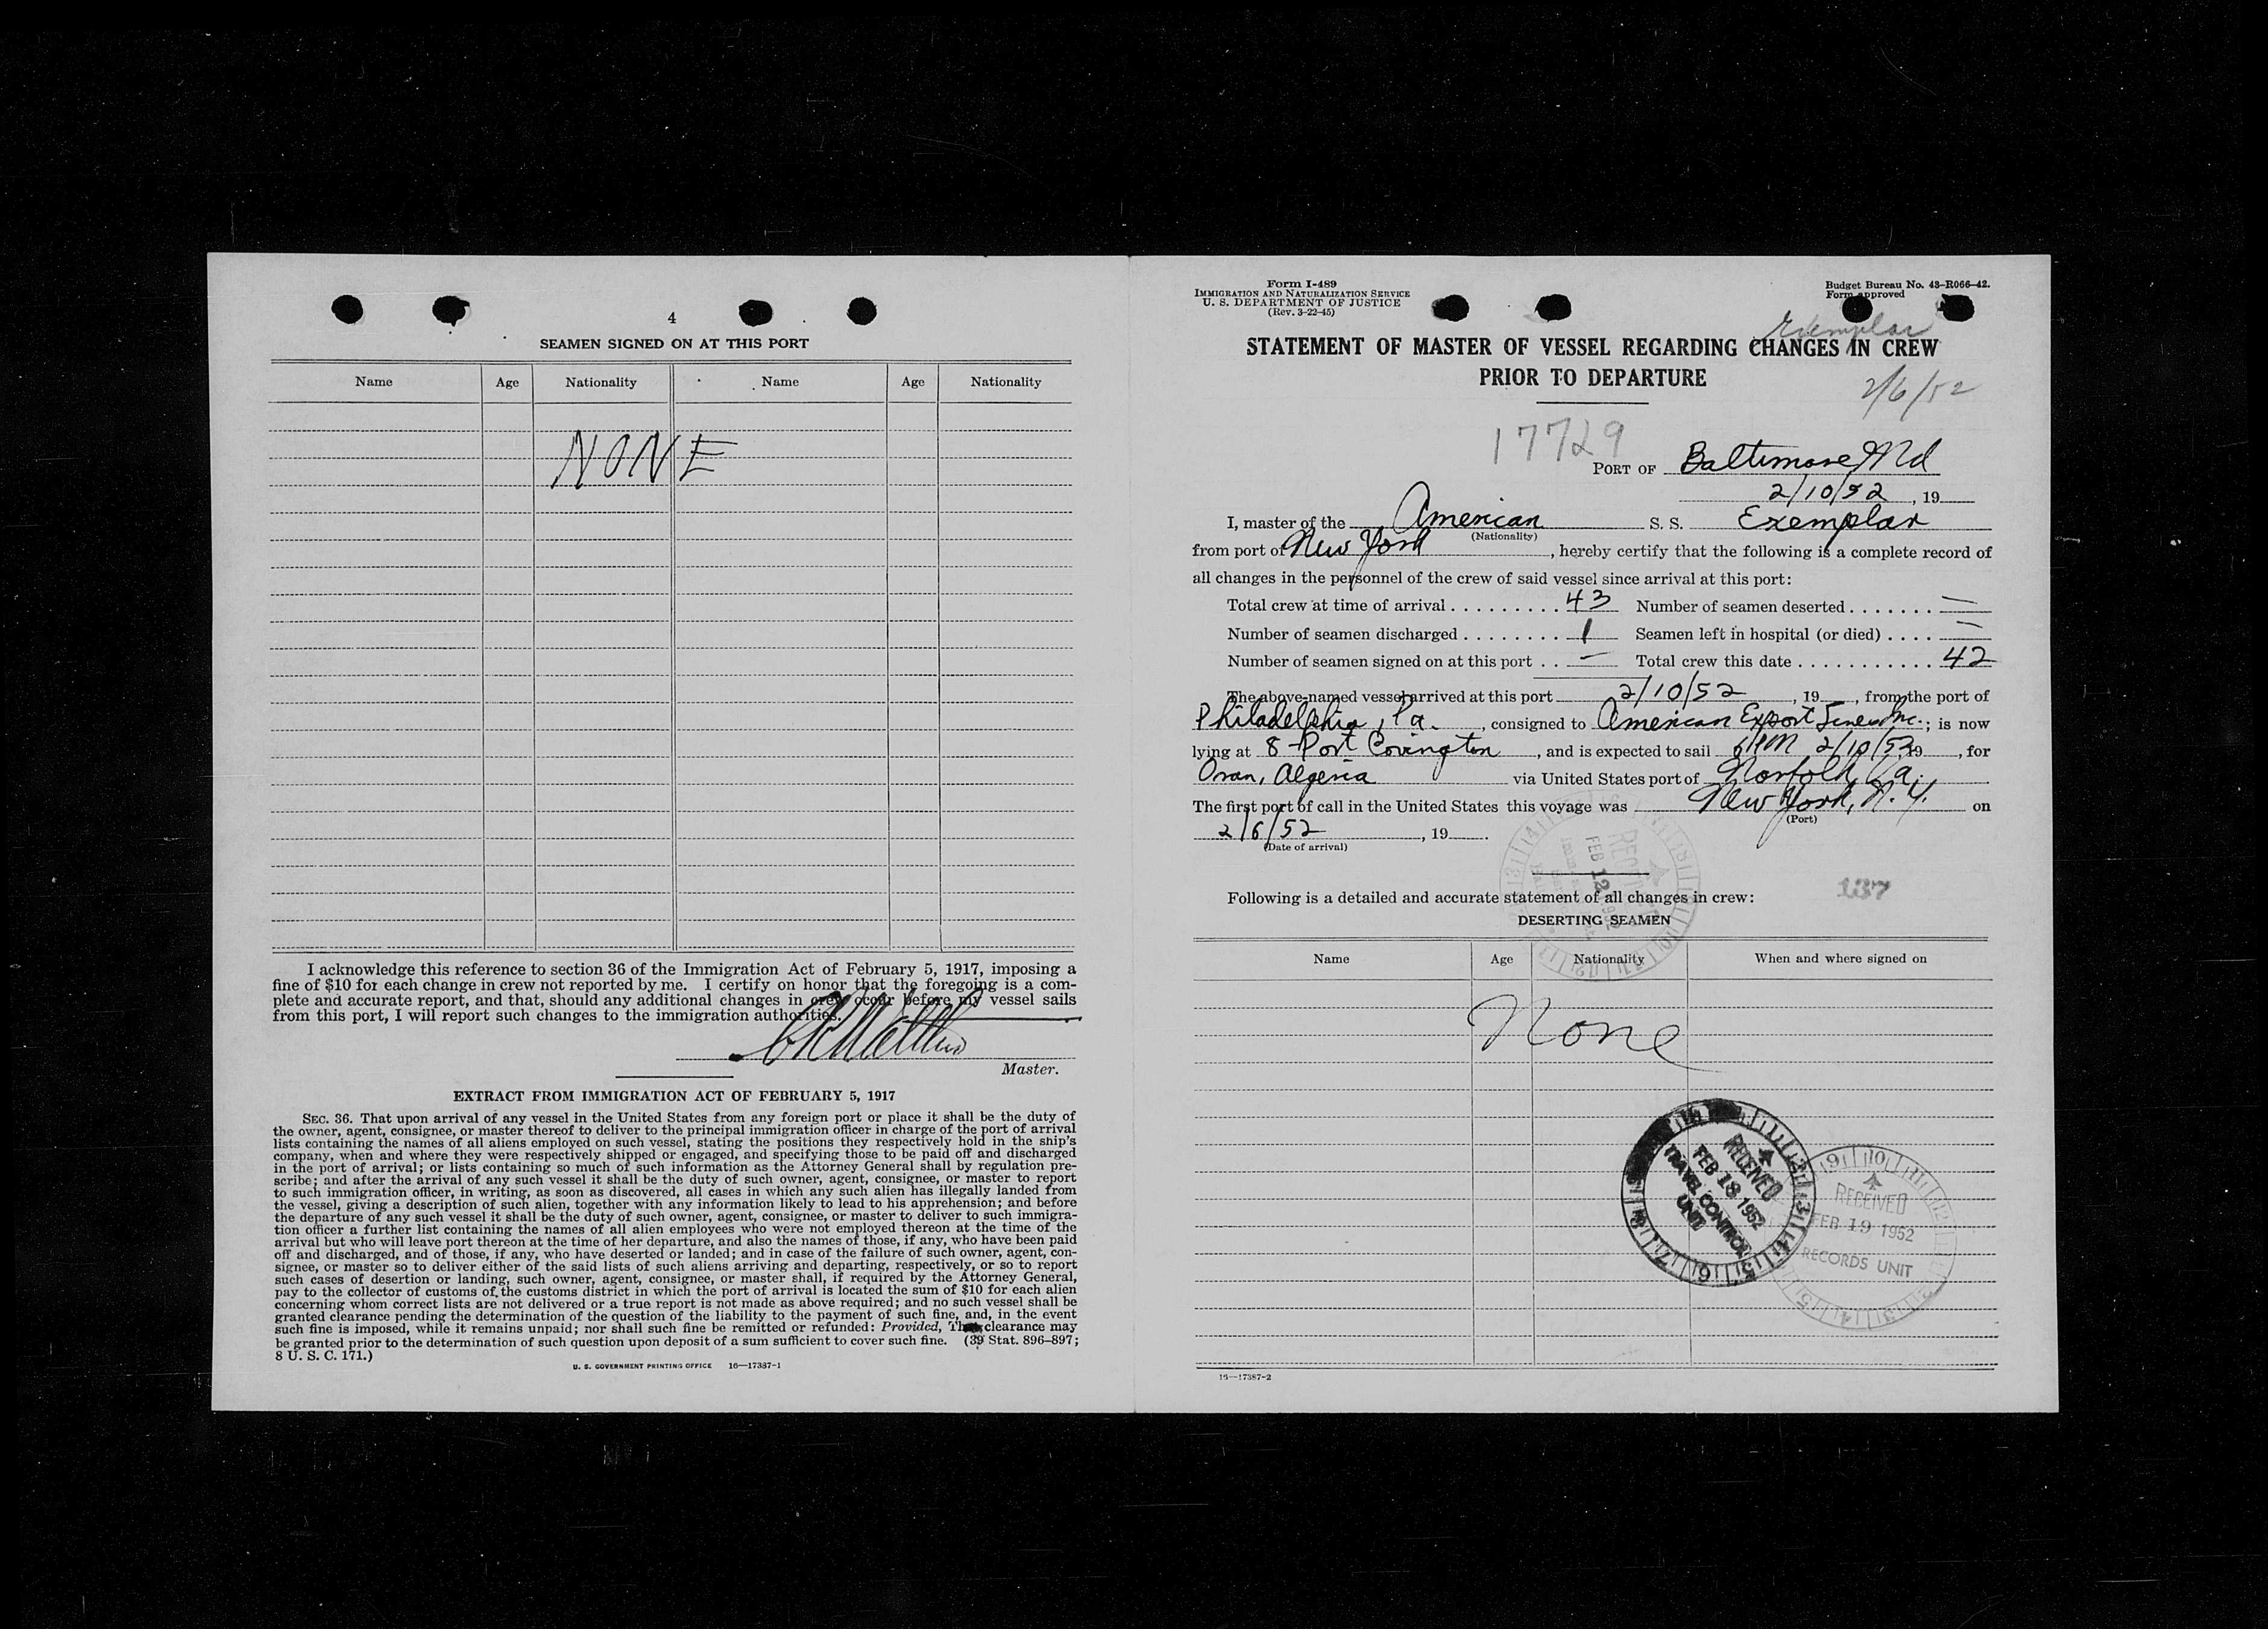 4
SEAMEN SIGNED ON AT THIS PORT
Name Age Nationality Name Age Nationality
NONE
I acknowledge this reference to section 36 of the Immigration Act of February 5, 1917, imposing a
fine of $10 for each change in crew not reported by me. I certify on honor that the foregoing is a com-
plete and accurate report, and that, should any additional changes in crew occur before my vessel sails
from this port, I will report such changes to the immigration authorities.
Master.
EXTRACT FROM IMMIGRATION ACT OF FEBRUARY 5, 1917
SEC. 36. That upon arrival of any vessel in the United States from any foreign port or place it shall be the duty of
the owner, agent, consignee, or master thereof to deliver to the principal immigration officer in charge of the port of arrival
lists containing the names of all aliens employed on such vessel, stating the positions they respectively hold in the ship's
company, when and where they were respectively shipped or engaged, and specifying those to be paid off and discharged
in the port of arrival; or lists containing so much of such information as the Attorney General shall by regulation pre-
scribe; and after the arrival of any such vessel it shall be the duty of such owner, agent, consignee, or master to report
to such immigration officer, in writing, as soon as discovered, all cases in which any such alien has illegally landed from
the vessel, giving a description of such alien, together with any information likely to lead to his apprehension; and before
the departure of any such vessel it shall be the duty of such owner, agent, consignee, or master to deliver to such immigra-
tion officer a further list containing the names of all alien employees who were not employed thereon at the time of the
arrival but who will leave port thereon at the time of her departure, and also the names of those, if any, who have been paid
off and discharged, and of those, if any, who have deserted or landed; and in case of the failure of such owner, agent, con-
signee, or master so to deliver either of the said lists of such aliens arriving and departing, respectively, or so to report
such cases of desertion or landing, such owner, agent, consignee, or master shall, if required by the Attorney General,
pay to the collector of customs of the customs district in which the port of arrival is located the sum of $10 for each alien
concerning whom correct lists are not delivered or a true report is not made as above required; and no such vessel shall be
granted clearance pending the determination of the question of the liability to the payment of such fine, and, in the event
such fine is imposed, while it remains unpaid; nor shall such fine be remitted or refunded: Provided, That clearance may
be granted prior to the determination of such question upon deposit of a sum sufficient to cover such fine. (39 Stat. 896–897;
8 U. S. C. 171.)
U. S. GOVERNMENT PRINTING OFFICE 16—17387-1
Form I-489
IMMIGRATION AND NATURALIZATION SERVICE
U. S. DEPARTMENT OF JUSTICE
(Rev. 3-22-45)
Budget Bureau No. 43-R066-42.
Form approved
Exemplar
STATEMENT OF MASTER OF VESSEL REGARDING CHANGES IN CREW
PRIOR TO DEPARTURE
2/6/52
17729
PORT OF Baltimore Md
2/10/52, 19
I, master of the American S. S. Exemplar
(Nationality)
from port of New York, hereby certify that the following is a complete record of
all changes in the personnel of the crew of said vessel since arrival at this port:
Total crew at time of arrival . . . . . . . . . 43 Number of seamen deserted . . . . . . . —
Number of seamen discharged . . . . . . . . 1 Seamen left in hospital (or died) . . . . —
Number of seamen signed on at this port . . — Total crew this date . . . . . . . . . . . 42
The above-named vessel arrived at this port 2/10/52, 19, from the port of
Philadelphia, Pa., consigned to American Export Lines Inc.; is now
lying at 8 Port Covington, and is expected to sail PM 2/10/52 19, for
Oran, Algeria via United States port of Norfolk, Va.
The first port of call in the United States this voyage was New York, N.Y. on
(Port)
2/6/52, 19.
(Date of arrival)
RECEIVED
FEB 12 1952
137
Following is a detailed and accurate statement of all changes in crew:
DESERTING SEAMEN
Name Age Nationality When and where signed on
None
RECEIVED
FEB 18 1952
TRAVEL CONTROL
UNIT
RECEIVED
FEB 19 1952
RECORDS UNIT
16—17387-2